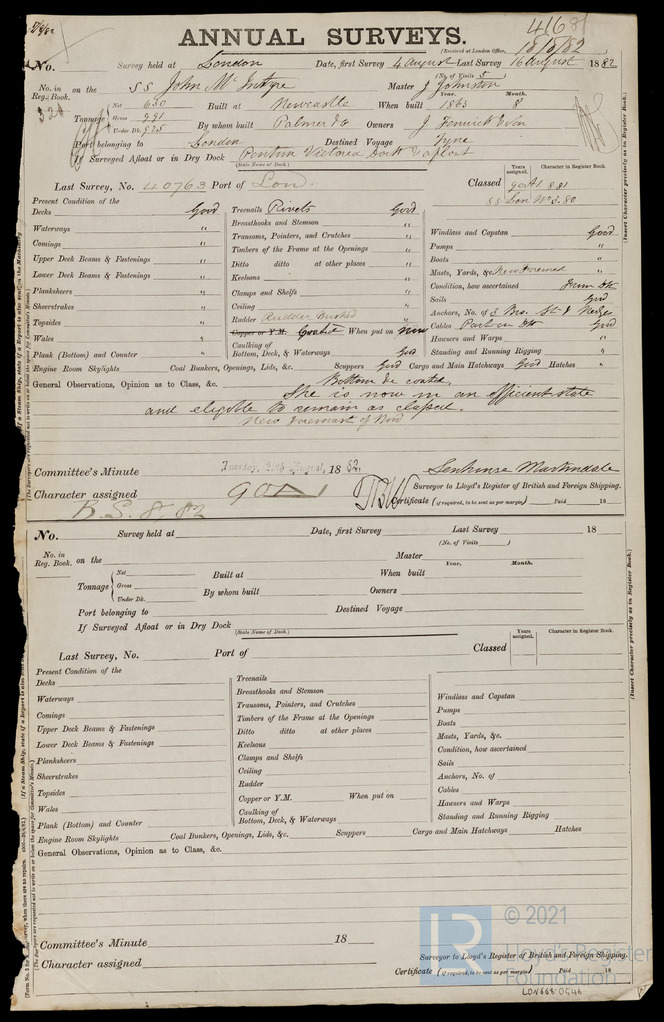 ANNUAL SURVEYS.
(Received at London Office, 18/8/82
No. Survey held at London Date, first Survey 4 August Last Survey 16 August 1882
(No. of Visits 5)
No. in Reg. Book. on the SS John McIntyre Master J Johnston
Year. Month.
Tonnage Net 650 Built at Newcastle When built 1863 8
Gross 991
Under Dk. 925 By whom built Palmer & Co Owners J Fenwick & Son
Port belonging to London Destined Voyage Tyne
If Surveyed Afloat or in Dry Dock Victoria Dock & afloat
(State Name of Dock.)
Years assigned. Character in Register Book.
Last Survey, No. 40763 Port of Lon. Classed 90A1 8.81
SS Lon No 3.80
Present Condition of the
Decks Good Treenails Rivets Good
Waterways " Breasthooks and Stemson " Windlass and Capstan Good
Comings " Transoms, Pointers, and Crutches " Pumps "
Upper Deck Beams & Fastenings " Timbers of the Frame at the Openings " Boats "
Lower Deck Beams & Fastenings " Ditto ditto at other places " Masts, Yards, &c. New Foremast "
Planksheers " Keelsons " Condition, how ascertained From Dk
Sheerstrakes " Clamps and Shelfs " Sails Good
Topsides " Ceiling " Anchors, No. of 3 Bow. St. & Kedge
Wales " Rudder Rudder Bushed Cables Part on Dk Good
Plank (Bottom) and Counter " Copper or Y.M. Coated When put on now Hawsers and Warps "
Caulking of Bottom, Deck, & Waterways Good Standing and Running Rigging "
Engine Room Skylights " Coal Bunkers, Openings, Lids, &c. " Scuppers Good Cargo and Main Hatchways Good Hatches "
General Observations, Opinion as to Class, &c. Bottom &c coated.
She is now in an efficient state
and eligible to remain as classed.
New Foremast of Wood
Committee's Minute Tuesday, August, 1882.
Character assigned 90A1
B.S. 8.82
Jenkinse Martindale
Surveyor to Lloyd's Register of British and Foreign Shipping.
Certificate (if required, to be sent as per margin) Paid 18
No. Survey held at Date, first Survey Last Survey 18
(No. of Visits )
No. in Reg. Book. on the Master
Year. Month.
Tonnage Net Built at When built
Gross
Under Dk. By whom built Owners
Port belonging to Destined Voyage
If Surveyed Afloat or in Dry Dock
(State Name of Dock.)
Years assigned. Character in Register Book.
Last Survey, No. Port of Classed
Present Condition of the
Decks Treenails
Waterways Breasthooks and Stemson Windlass and Capstan
Comings Transoms, Pointers, and Crutches Pumps
Upper Deck Beams & Fastenings Timbers of the Frame at the Openings Boats
Lower Deck Beams & Fastenings Ditto ditto at other places Masts, Yards, &c.
Planksheers Keelsons Condition, how ascertained
Sheerstrakes Clamps and Shelfs Sails
Topsides Ceiling Anchors, No. of
Wales Rudder Cables
Plank (Bottom) and Counter Copper or Y.M. When put on Hawsers and Warps
Caulking of Bottom, Deck, & Waterways Standing and Running Rigging
Engine Room Skylights Coal Bunkers, Openings, Lids, &c. Scuppers Cargo and Main Hatchways Hatches
General Observations, Opinion as to Class, &c.
Committee's Minute 18
Character assigned
Surveyor to Lloyd's Register of British and Foreign Shipping.
Certificate (if required, to be sent as per margin) Paid 18
(Insert Character precisely as in Register Book.)
(Insert Character precisely as in Register Book.)
LR © 2021
Lloyd's Register
Foundation
LON668-0546